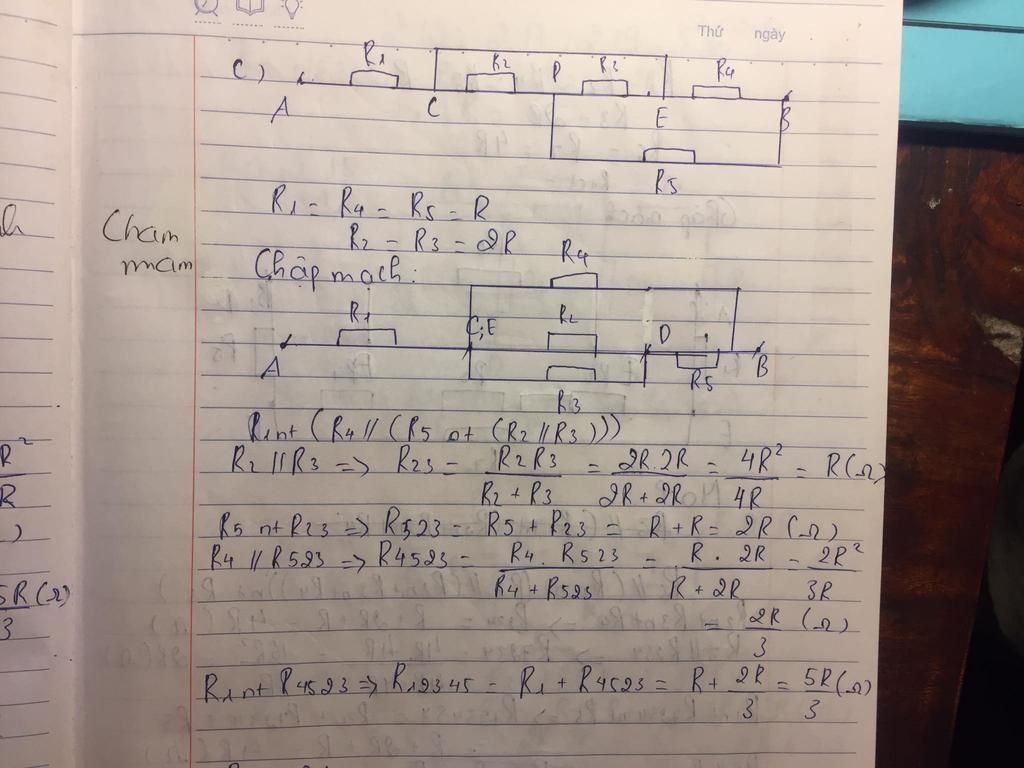 Thứ ngày
C) R1 R2 D R3 R4
A C E B
R5
R1 = R4 = R5 = R
R2 = R3 = 2R
Cham
mam
Chập mạch:
R4
R1 C;E R2 D
A R5 B
R3
R1 nt (R4 // (R5 nt (R2 // R3)))
R2 // R3 => R23 = R2R3 / R2 + R3 = 2R.2R / 2R + 2R = 4R² / 4R = R (Ω)
R5 nt R23 => R523 = R5 + R23 = R + R = 2R (Ω)
R4 // R523 => R4523 = R4 . R523 / R4 + R523 = R . 2R / R + 2R = 2R² / 3R
= 2R / 3 (Ω)
R1 nt R4523 => R12345 = R1 + R4523 = R + 2R / 3 = 5R / 3 (Ω)
R²
R
)
5R (Ω)
3